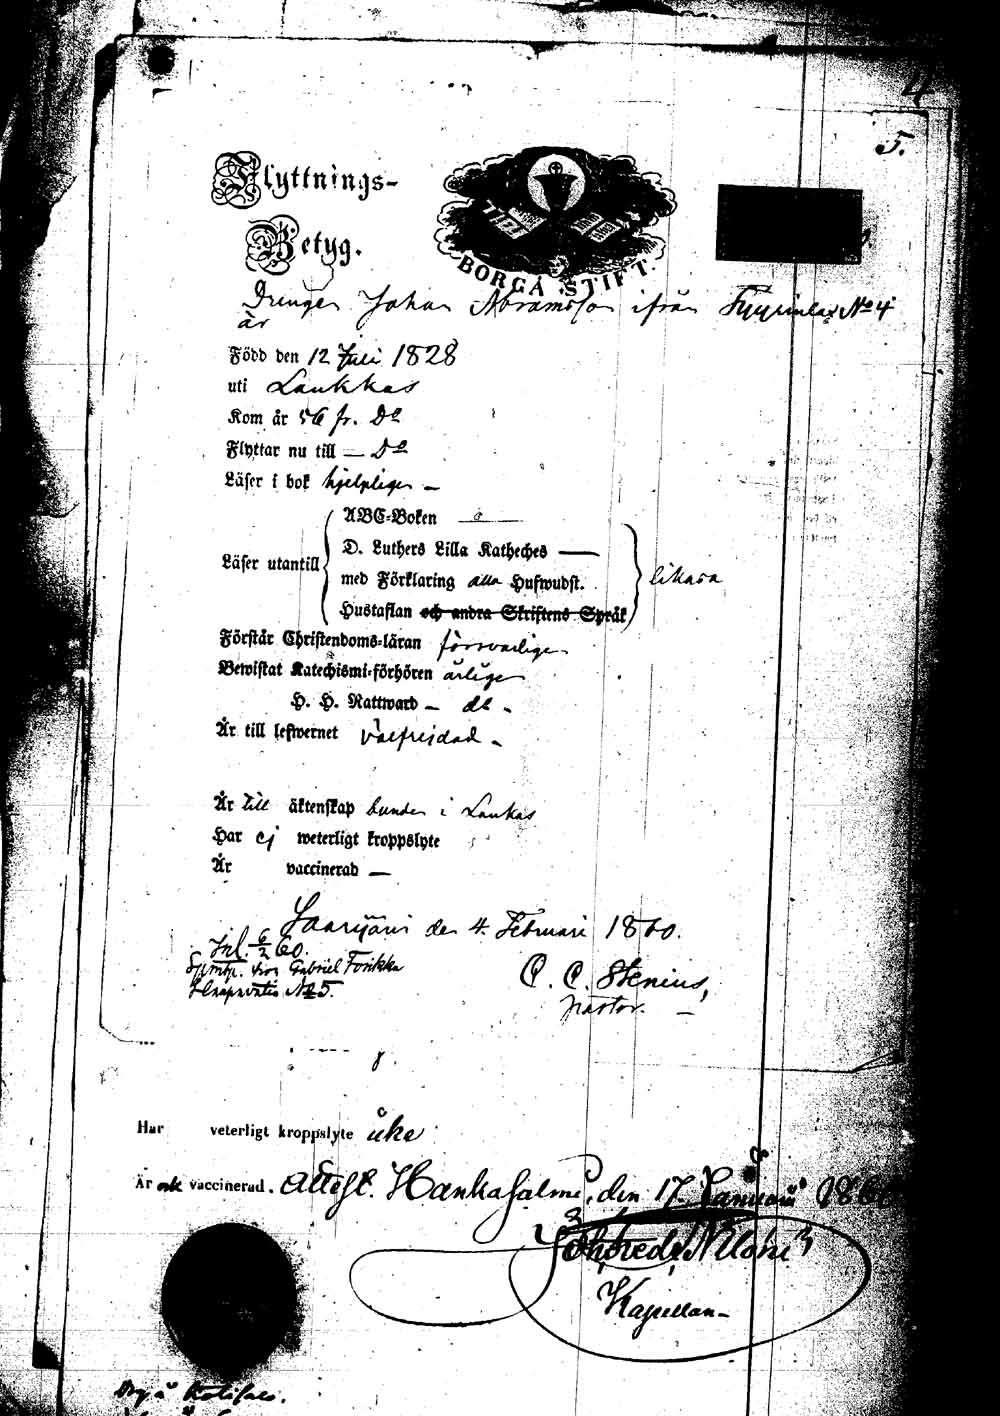 5.
Flyttnings-
Betyg.
BORGÅ STIFT.
Drengen Johan Abramsson ifrån No 4
är
Född den 12 Juli 1828
uti Laukkas
Kom år 56 fr. Do
Flyttar nu till — Do
Läser i bok hjelpligen —
ABC-Boken
D. Luthers Lilla Katheches —
Läser utantill
med Förklaring alla Hufwudst.
likaså
Hustaflan och andra Skriftens Språk
Förstår Christendoms-läran försvarligen
Bewistat Katechismi-förhören årligen
H. H. Nattward — do -
Är till lefwernet välfrejdad -
Är till äktenskap bunden i Laukas
Har ej weterligt kroppslyte
Är vaccinerad —
Saarijärvi den 4. Februari 1860.
Inl. 6/2 60.
Gabriel
No 5.
C. C. Stenius,
pastor. —
Har veterligt kroppslyte icke
Är vaccinerad. attest. Hankasalmi, den 17 Januari
Kapellan-